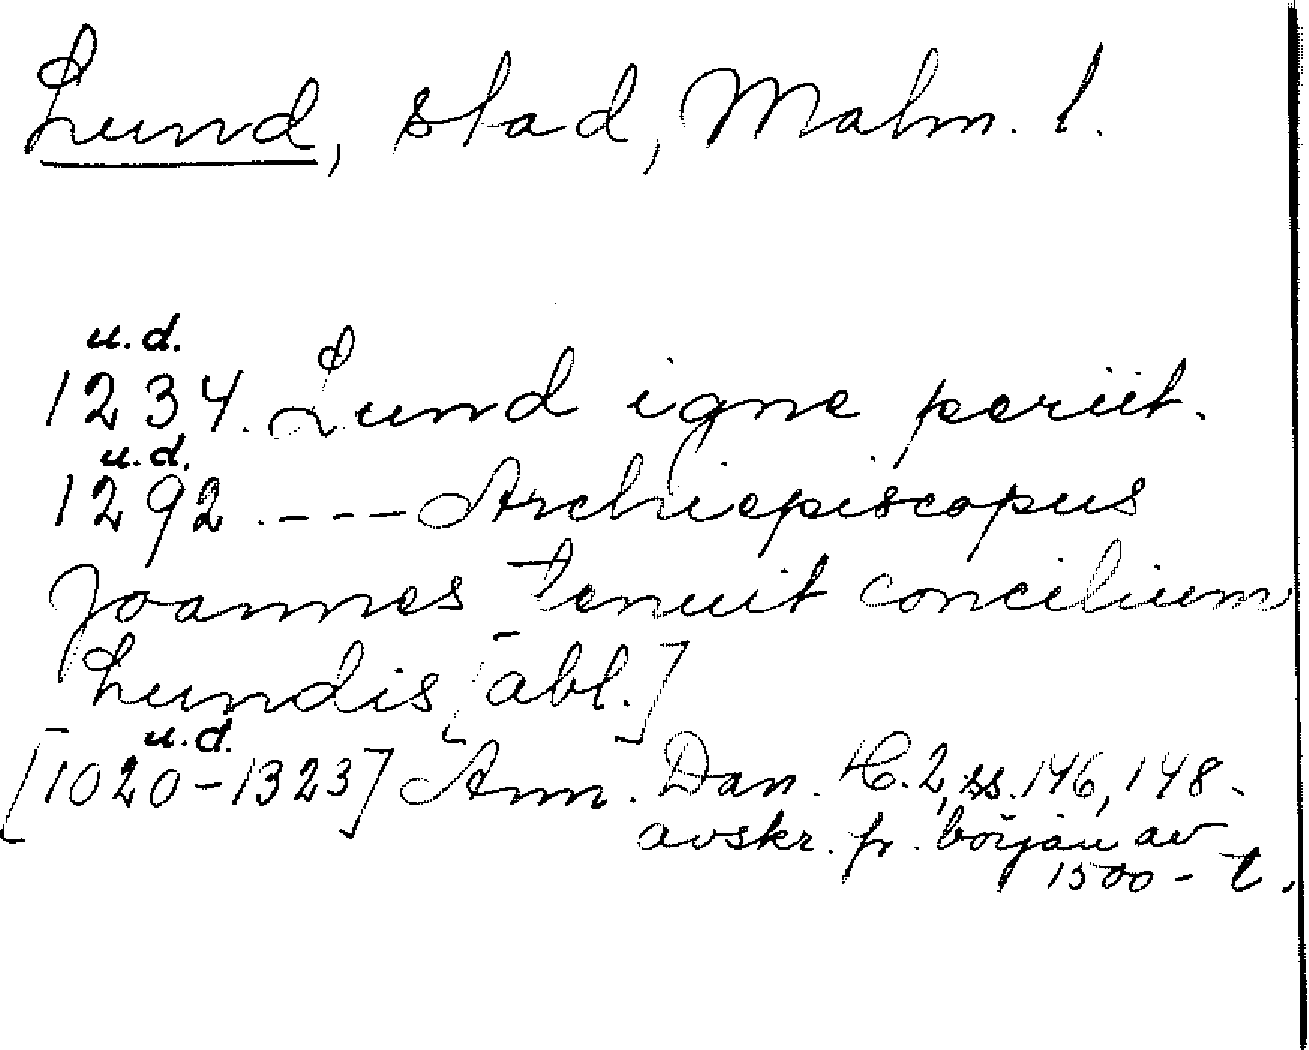 Lund, stad, Malm. l.
u.d.
1234. Lund igne periit.
u.d.
1292. --- Archiepiscopus
Joannes tenuit concilium
Lundis [abl.]
u.d.
[1020-1323] Ann. Dan. H.2, ss. 146, 148.
avskr. fr. början av
1500-t.